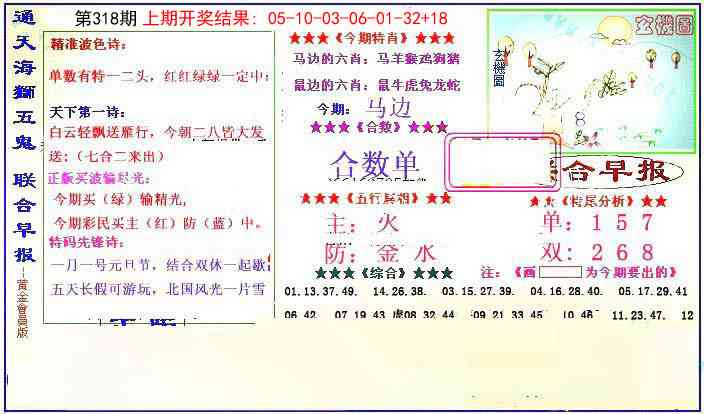 第318期 上期开奖结果：05-10-03-06-01-32+18
通天海狮五鬼 联合早报
--黄金會員版
精准波色诗：
单数有特一二头，红红绿绿一定中；
天下第一诗：
白云轻飘送雁行，今朝二八皆大发
送：（七合二米出）
正版买波输尽光：
今期买（绿）输精光，
今期彩民买主（红）防（蓝）中。
特码先锋诗：
一月一号元旦节，结合双休一起歇
五天长假可游玩，北国风光一片雪
★★★《今期特肖》★★★
马边的六肖：马羊猴鸡狗猪
鼠边的六肖：鼠牛虎兔龙蛇
今期：马边
★★★《合数》★★★
合数单
★★★《五行属相》★★★
主：火
防：金 水
★★★《综合》★★★
玄機圖
玄機圖
8
合早报
★★《特尾分析》★★
单：1 5 7
双：2 6 8
注：《画 为今期要出的》
01.13.37.49. 14.26.38. 03.15.27.39. 04.16.28.40. 05.17.29.41
06 42 07 19 43 虎08 32 44 09 21 33 45 10 46 11.23.47. 12